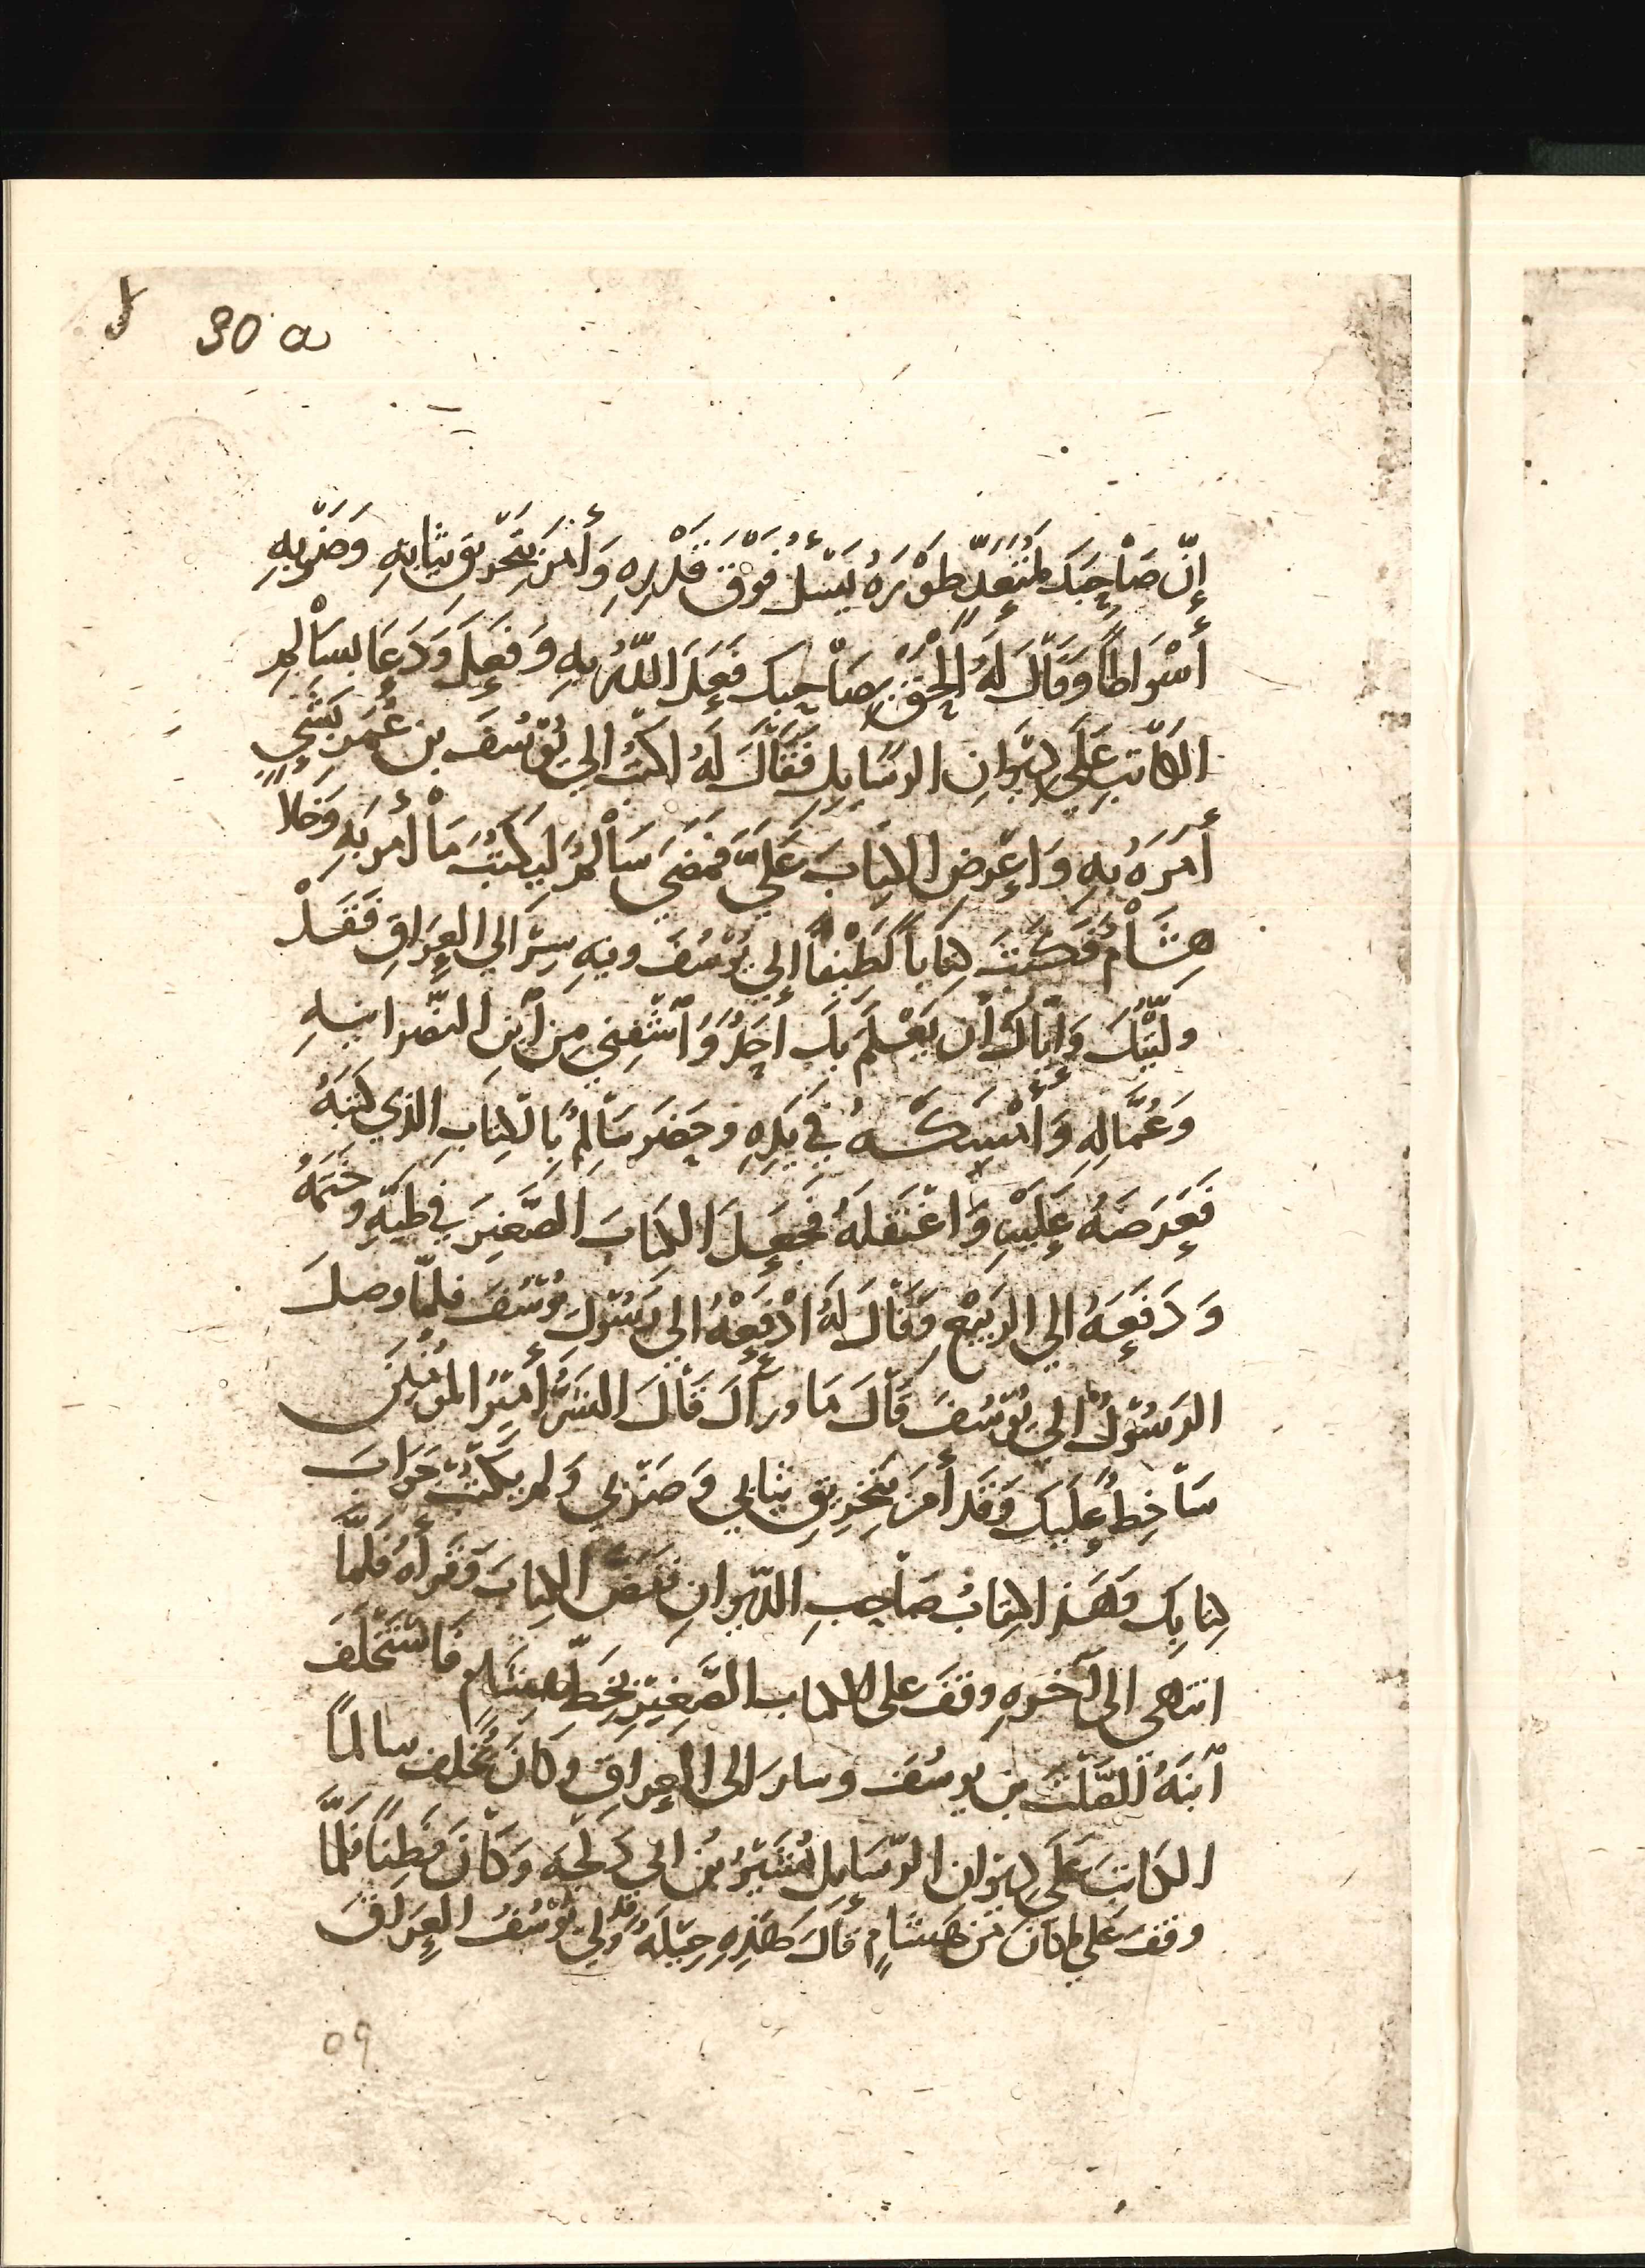 30 a
إِنّ صَاْحِبَكَ لَمُتَعَدٍّ طَوْرَهُ يَسْئَلُ فَوْقَ قَدْرِهِ وَأَمَرَ بِتَخْرِيْقِ ثِيَابِهِ وَضَرْبِهِ
أَسْوَاطًا وَقَالَ لَهُ الْحَقْ بِصَاْحِبِكَ فَعَلَ اللهُ بِهِ وَفَعَلَ وَدَعَا بسَاْلمِ
الكَاتبِ عَلَي دِيْوَانِ الرسَايِلِ فَقَالَ لَهُ اكتُبْ الي يُوْسُفَ بن عُمَرَ بِشَيءٍ
أَمَرَهُ بِهِ وَاعِرْضِ الكِتَابَ عَلَيَّ فَمَضَي سَاْلمٌ لِيَكْتُبَ مَا أُمر بهِ وَخَلا
هِشَاْمٌ فَكَتَبَ كِتَابًا لَطِيْفًا إلي يُوْسُفَ وفيهِ سِرْ الي العِرَاقِ فَقَدْ
ولَّيْتُكَ وَايّاكَ أن يَعْلَمَ بِكَ أحَدٌ وَاْشْفِنِي مِن اْبنِ النّصْرانيهِ
وَعُمَّالِهِ وَأَمْسَكَهُ فِي يَدِهِ وحَضَر سَاْلِمٌ بِالكِتَابِ الذي كَتَبَهُ
فَعَرَضَهُ عَلَيْهِ وَاغْتَفَلَهُ فجَعَلَ الكِتَابَ الصَّغِيْرَ في طَيّهِ وخَتَمَهُ
وَدَفَعَهُ الي الربَيْعِ وَقَالَ لَهُ ادْفَعْهُ الي رَسُوْلِ يُوْسُفَ فلمّا وصلَ
الرَسُوْلُ الي يُوْسُفَ قَاْلَ مَا ورَأَكَ قَاْلَ الشَرُّ أَمِيْرُ المُؤْمِنِيْنَ
سَاْخِطٌ عَلَيْكَ وَقَد أَمَرَ بتَخْرِيقِ ثيَابِي وَضَرْبي وَلم يَكْتُبْ جَوَابَ
كِتَابِكَ وَهَذَا كِتَابُ صَاْحِبِ الدّيْوَانِ فَفَضَّ الكِتَابَ وَقَرأَهُ فَلَمَّا
انتهى الى آخَرهِ وقفَ على الكتاب الصَّغِيْرِ بِخَطِّ هِشَامٍ فَاسْتَخْلَفَ
اْبنَهُ الصَّلْتَ بن يوسُفَ وسارَ الى العِراقِ وكانَ يخْلُف سالماً
الكَاتبَ عَلَي دِيْوَان الرّسَايلِ بُشَيْرُ بنُ ابي دَلْجَة وَكَاْنَ فَطِنًا فَلَمَّا
وقفَ عَلَي ما كانَ مِن هشَامٍ قَالَ هَذِهِ حِيْلَةٌ قَدْ وُلّي يُوْسُفُ العِرَاقَ
٥٩